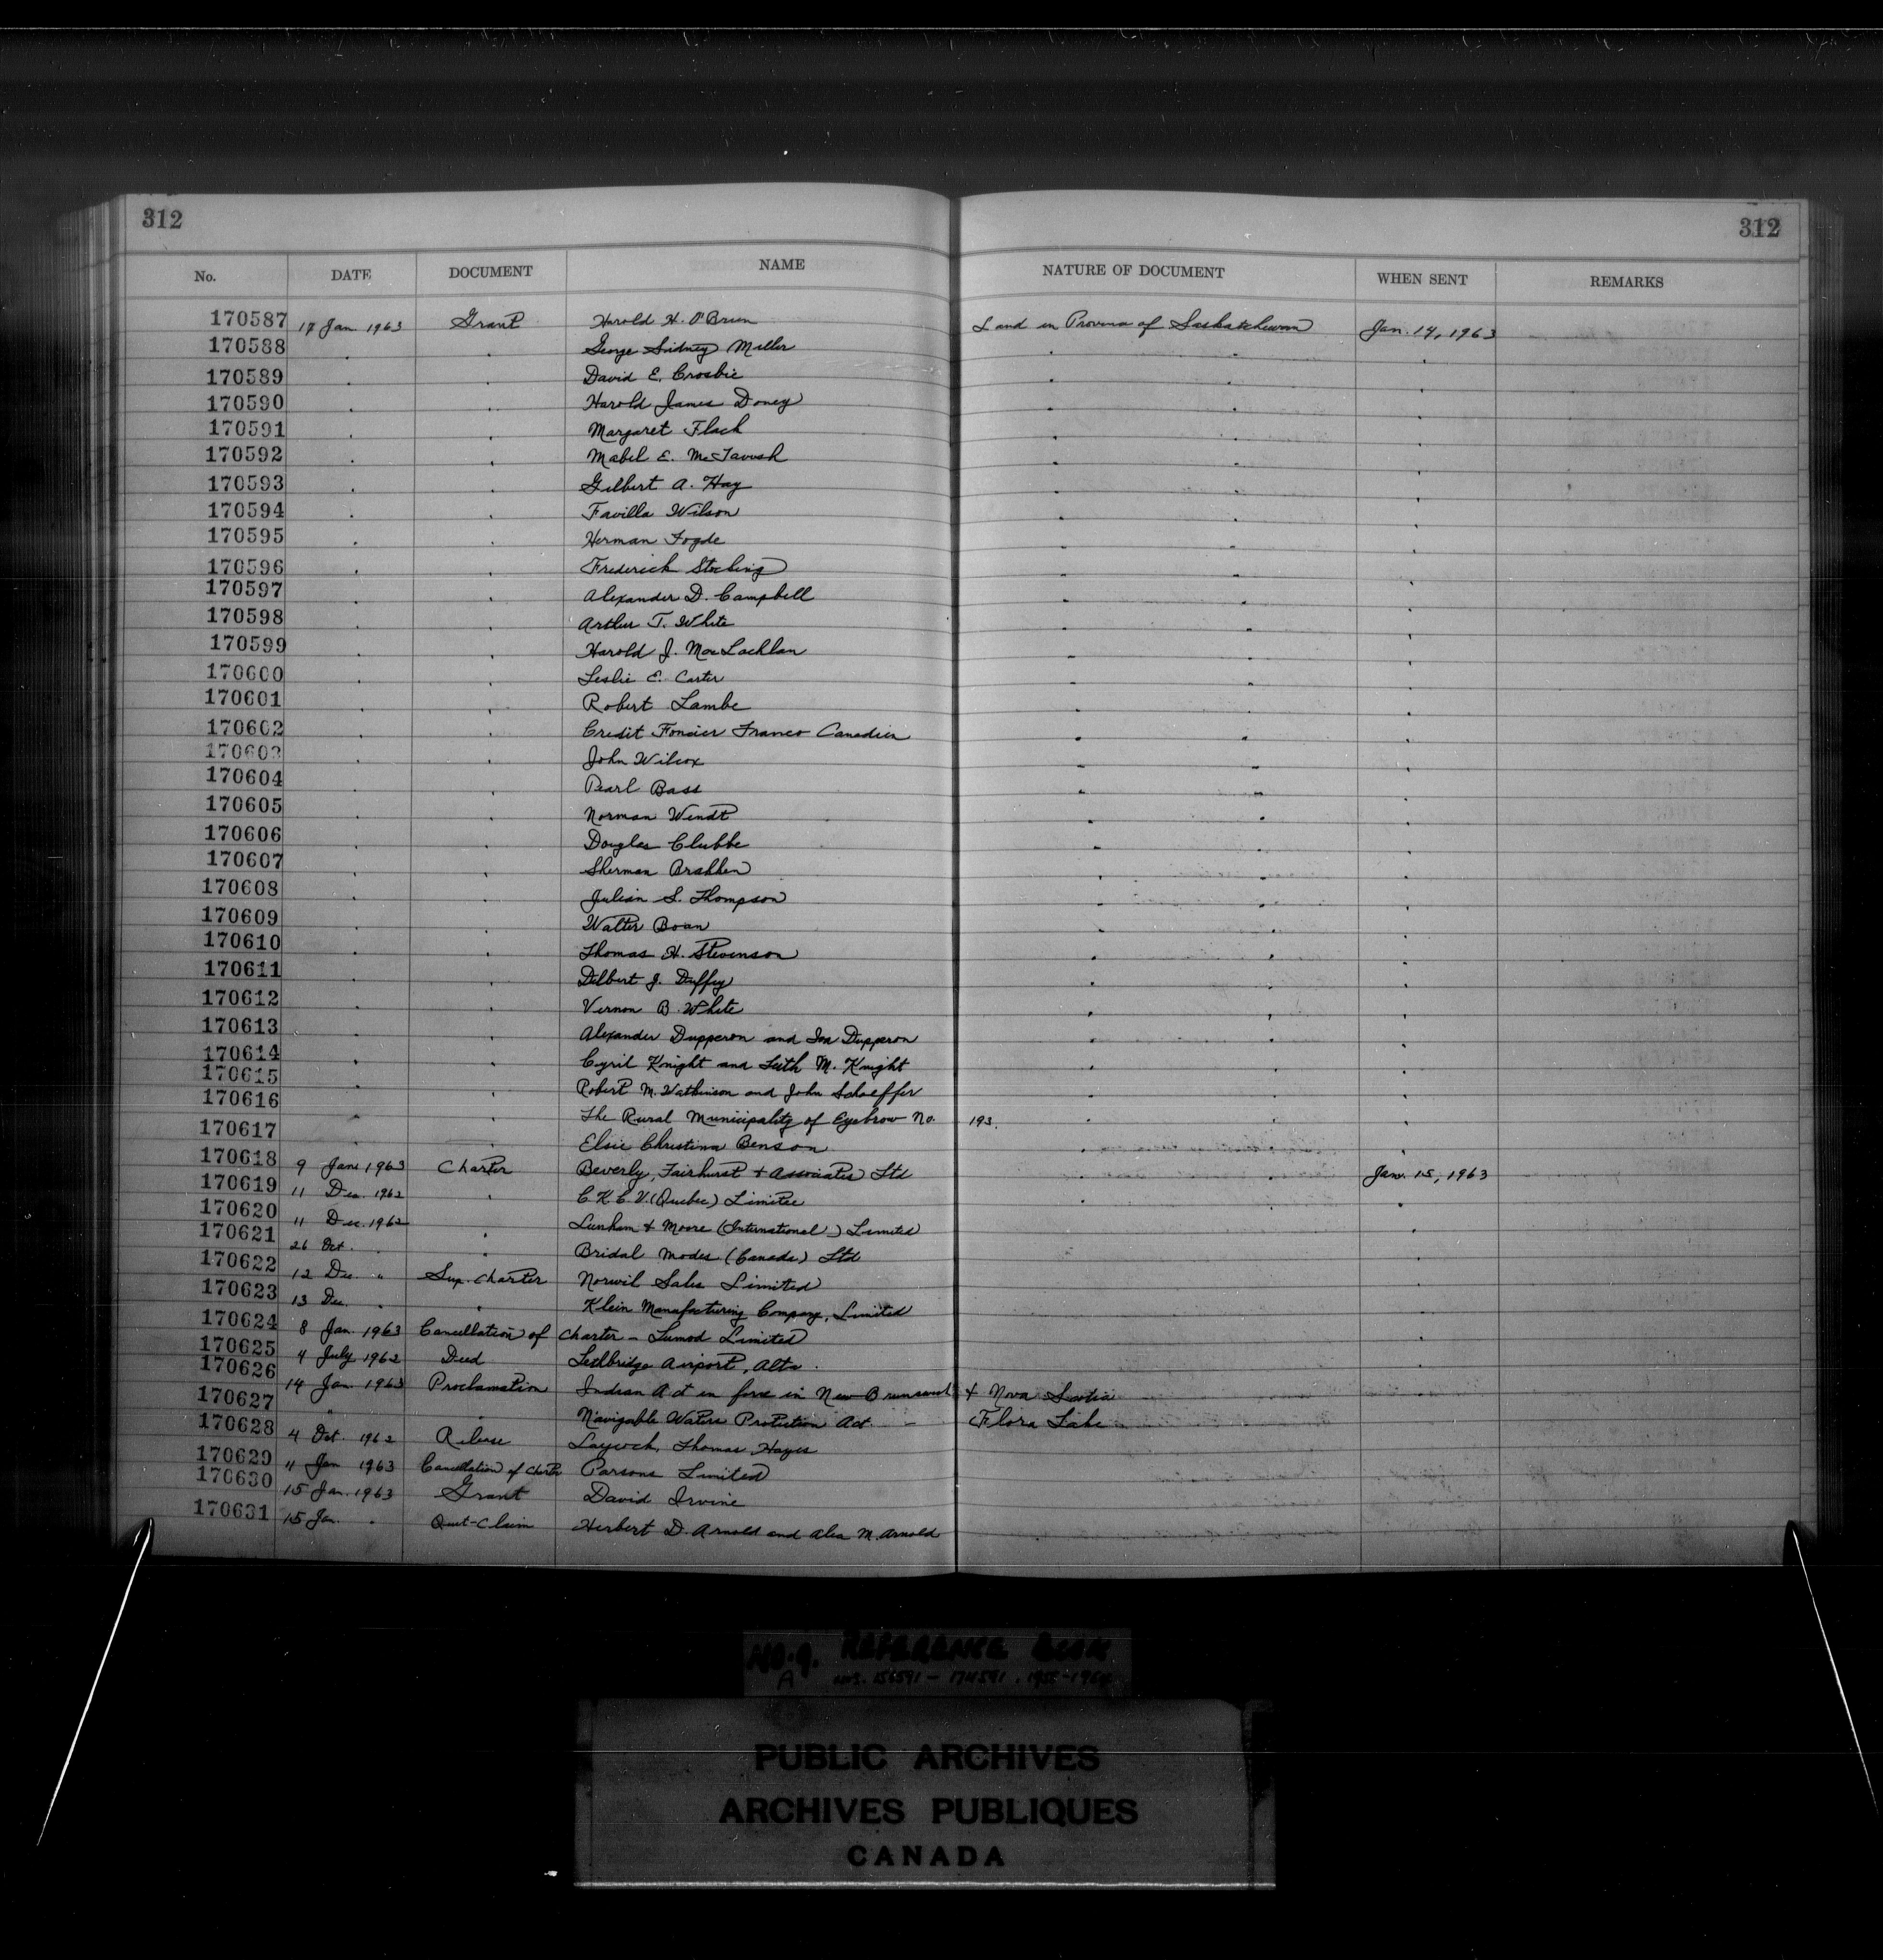 312 312
No. DATE DOCUMENT NAME NATURE OF DOCUMENT WHEN SENT REMARKS
170587 17 Jan 1963 Grant Harold H. O'Brien Land in Province of Saskatchewan Jan. 14, 1963
170588 . . George Sidney Miller . . .
170589 . . David E. Crosbie . . .
170590 . . Harold James Doney . . .
170591 . . Margaret Flach . . .
170592 . . Mabel E. McTavish . . .
170593 . . Gilbert A. Hay . . .
170594 . . Favilla Wilson . . .
170595 . . Herman Fogde . . .
170596 . . Frederick . . .
170597 . . Alexander D. Campbell . . .
170598 . . Arthur T. White . . .
170599 . . Harold J. MacLachlan . . .
170600 . . Leslie E. Carter . . .
170601 . . Robert Lambe . . .
170602 . . Credit Foncier Franco Canadien . . .
170603 . . John Wilcox . . .
170604 . . Pearl Bass . . .
170605 . . Norman Wendt . . .
170606 . . Douglas Clubbe . . .
170607 . . Sherman . . .
170608 . . Julian S. Thompson . . .
170609 . . Walter Boan . . .
170610 . . Thomas H. Stevenson . . .
170611 . . Delbert J. Duffey . . .
170612 . . Vernon B. White . . .
170613 . . Alexander Dupperon and Ina Dupperon . . .
170614 . . Cyril Knight and M. Knight . . .
170615 . . Robert M. Watkinson and John Schaeffer . . .
170616 . . The Rural Municipality of Eyebrow No. 193. . . .
170617 . . Elsie Christina Benson . . .
170618 9 Jan 1963 Charter Beverly, Fairhurst & Associates Ltd . . Jan. 15, 1963
170619 11 Dec. 1962 . C.K.C.V. (Quebec) Limitee . .
170620 11 Dec. 1962 . Lunham & Moore (International) Limited .
170621 26 Oct. . . Bridal Modes (Canada) Ltd .
170622 12 Dec. " Sup. Charter Norwil Sales Limited .
170623 13 Dec. . . Klein Manufacturing Company, Limited .
170624 8 Jan. 1963 Cancellation of Charter - Limited .
170625 4 July 1962 Deed Lethbridge Airport, Alta. .
170626 14 Jan. 1963 Proclamation Indian Act in force in New Brunswick & Nova Scotia .
170627 " . Navigable Waters Protection Act - Flora Lake .
170628 4 Oct. 1962 Release Laycock, Thomas Hayes
170629 11 Jan 1963 Cancellation of Charter Parsons Limited
170630 15 Jan. 1963 Grant David Irvine
170631 15 Jan. . Quit-Claim Herbert D. Arnold and M. Arnold
NO. 9. REFERENCE BOOK
A
PUBLIC ARCHIVES
ARCHIVES PUBLIQUES
CANADA